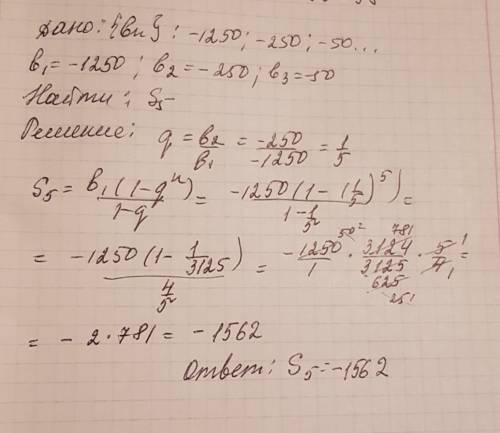 Дано: {bn}: -1250; -250; -50...
b₁ = -1250; b₂ = -250; b₃ = -50
Найти: S₅-
Решение: q = b₂/b₁ = -250/-1250 = 1/5
S₅ = b₁(1-qⁿ)/1-q = -1250(1-(1/5)⁵)/1-1/5 =
= -1250(1-1/3125)/4/5 = -1250/1 · 3124/3125 · 5/4 =
= - 2·781 = - 1562
Ответ: S₅ = -1562